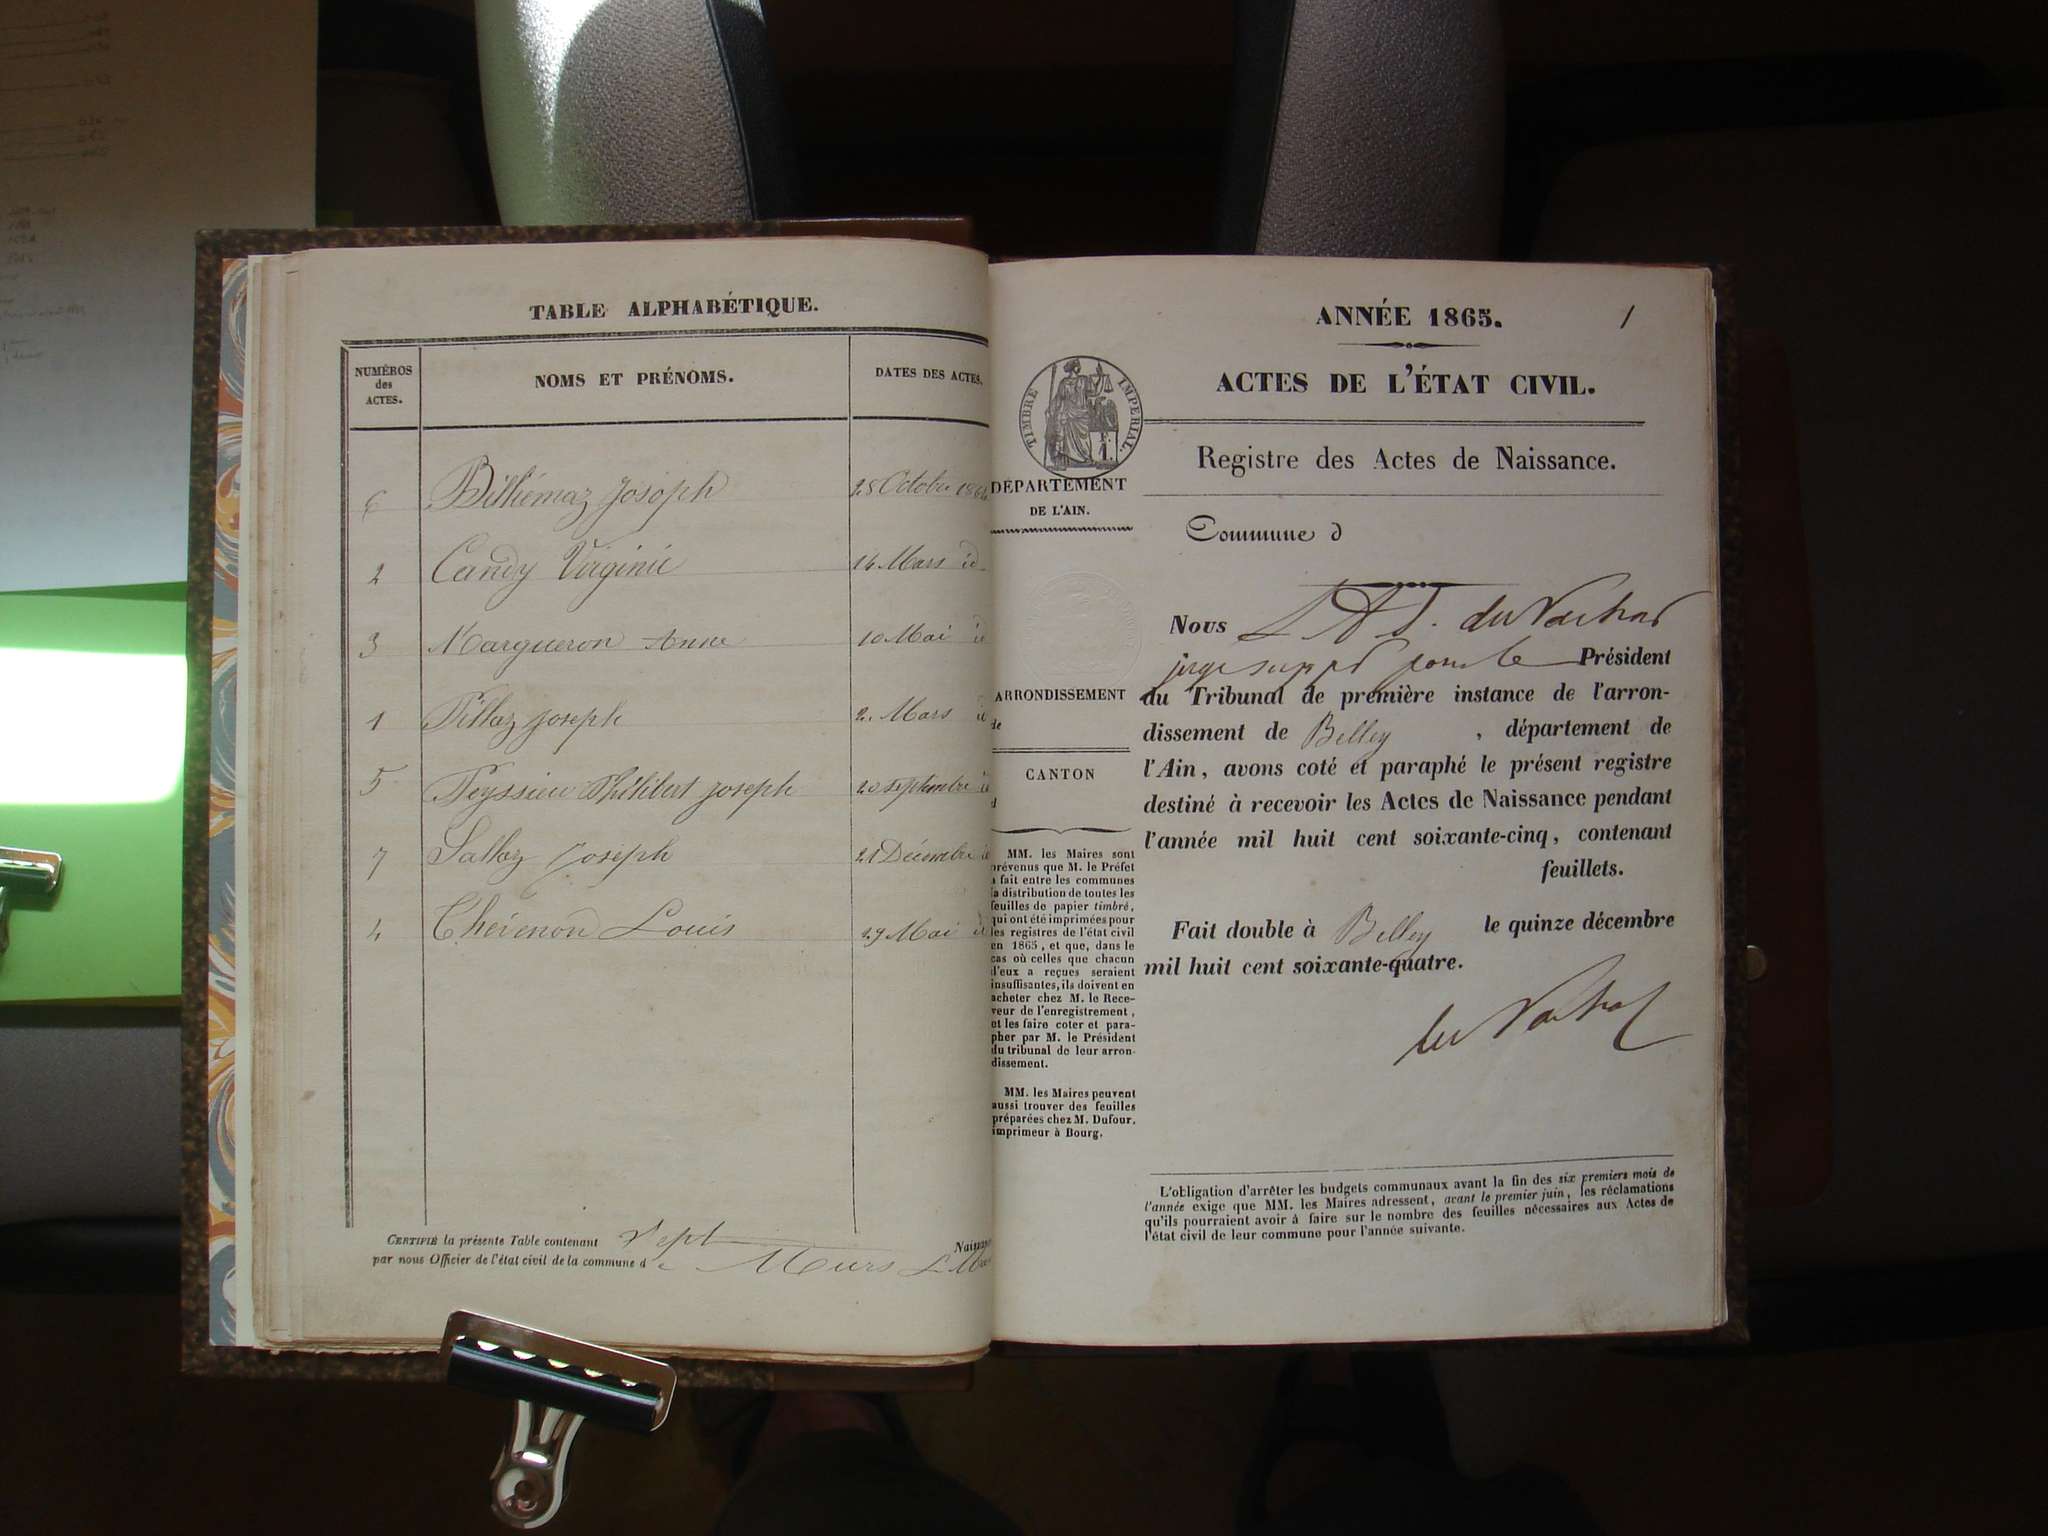 TABLE ALPHABÉTIQUE.
NUMÉROS des ACTES. NOMS ET PRÉNOMS. DATES DES ACTES.
6 Billiémaz Joseph 28 Octobre 1864
2 Candy Virginie 14 Mars id
3 Margueron Anne 10 Mai id
1 Pillaz Joseph 2 Mars id
5 Peyssieu Philibert Joseph 20 septembre id
7 Sallaz Joseph 21 Décembre id
4 Thévenon Louis 29 Mai id
CERTIFIÉ la présente Table contenant Sept
par nous Officier de l'état civil de la commune de Murs
ANNÉE 1865. 1
ACTES DE L'ÉTAT CIVIL.
TIMBRE IMPÉRIAL.
Registre des Actes de Naissance.
DÉPARTEMENT
DE L'AIN.
Commune d
ARRONDISSEMENT
de
CANTON
d
MM. les Maires sont
prévenus que M. le Préfet
a fait entre les communes
la distribution de toutes les
feuilles de papier timbré,
qui ont été imprimées pour
les registres de l'état civil
en 1865, et que, dans le
cas où celles que chacun
d'eux a reçues seraient
insuffisantes, ils doivent en
acheter chez M. le Rece-
veur de l'enregistrement,
et les faire coter et para-
pher par M. le Président
du tribunal de leur arron-
dissement.
MM. les Maires peuvent
aussi trouver des feuilles
préparées chez M. Dufour,
imprimeur à Bourg.
Nous
juge supp pour le Président
du Tribunal de première instance de l'arron-
dissement de Belley , département de
l'Ain, avons coté et paraphé le présent registre
destiné à recevoir les Actes de Naissance pendant
l'année mil huit cent soixante-cinq, contenant
feuillets.
Fait double à Belley le quinze décembre
mil huit cent soixante-quatre.
L'obligation d'arrêter les budgets communaux avant la fin des six premiers mois de
l'année exige que MM. les Maires adressent, avant le premier juin, les réclamations
qu'ils pourraient avoir à faire sur le nombre des feuilles nécessaires aux Actes de
l'état civil de leur commune pour l'année suivante.